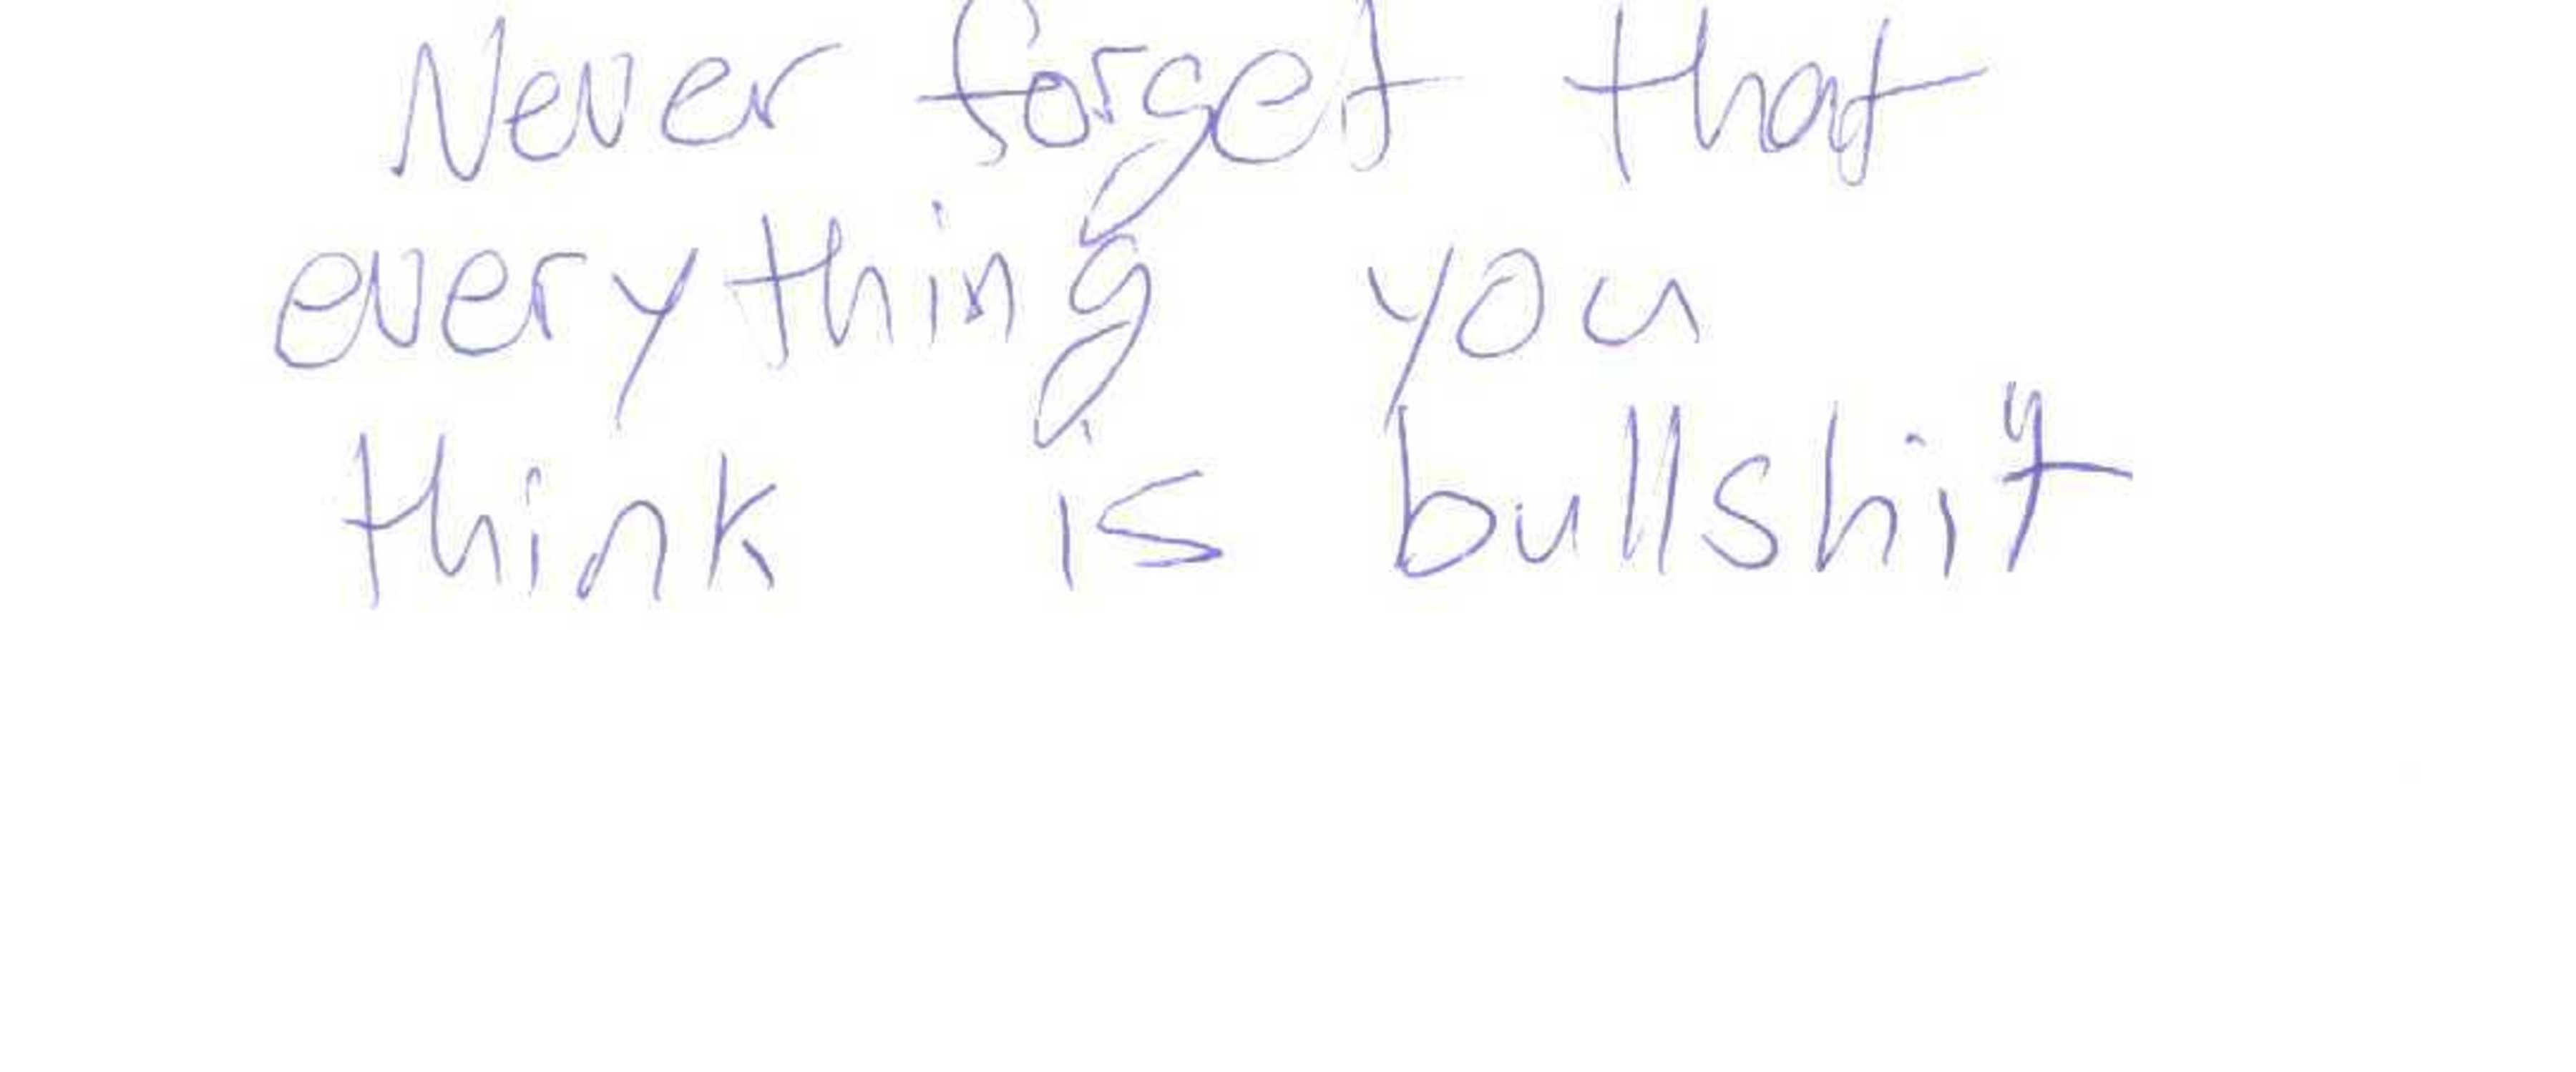 Never forget that
everything you
think is bullshit